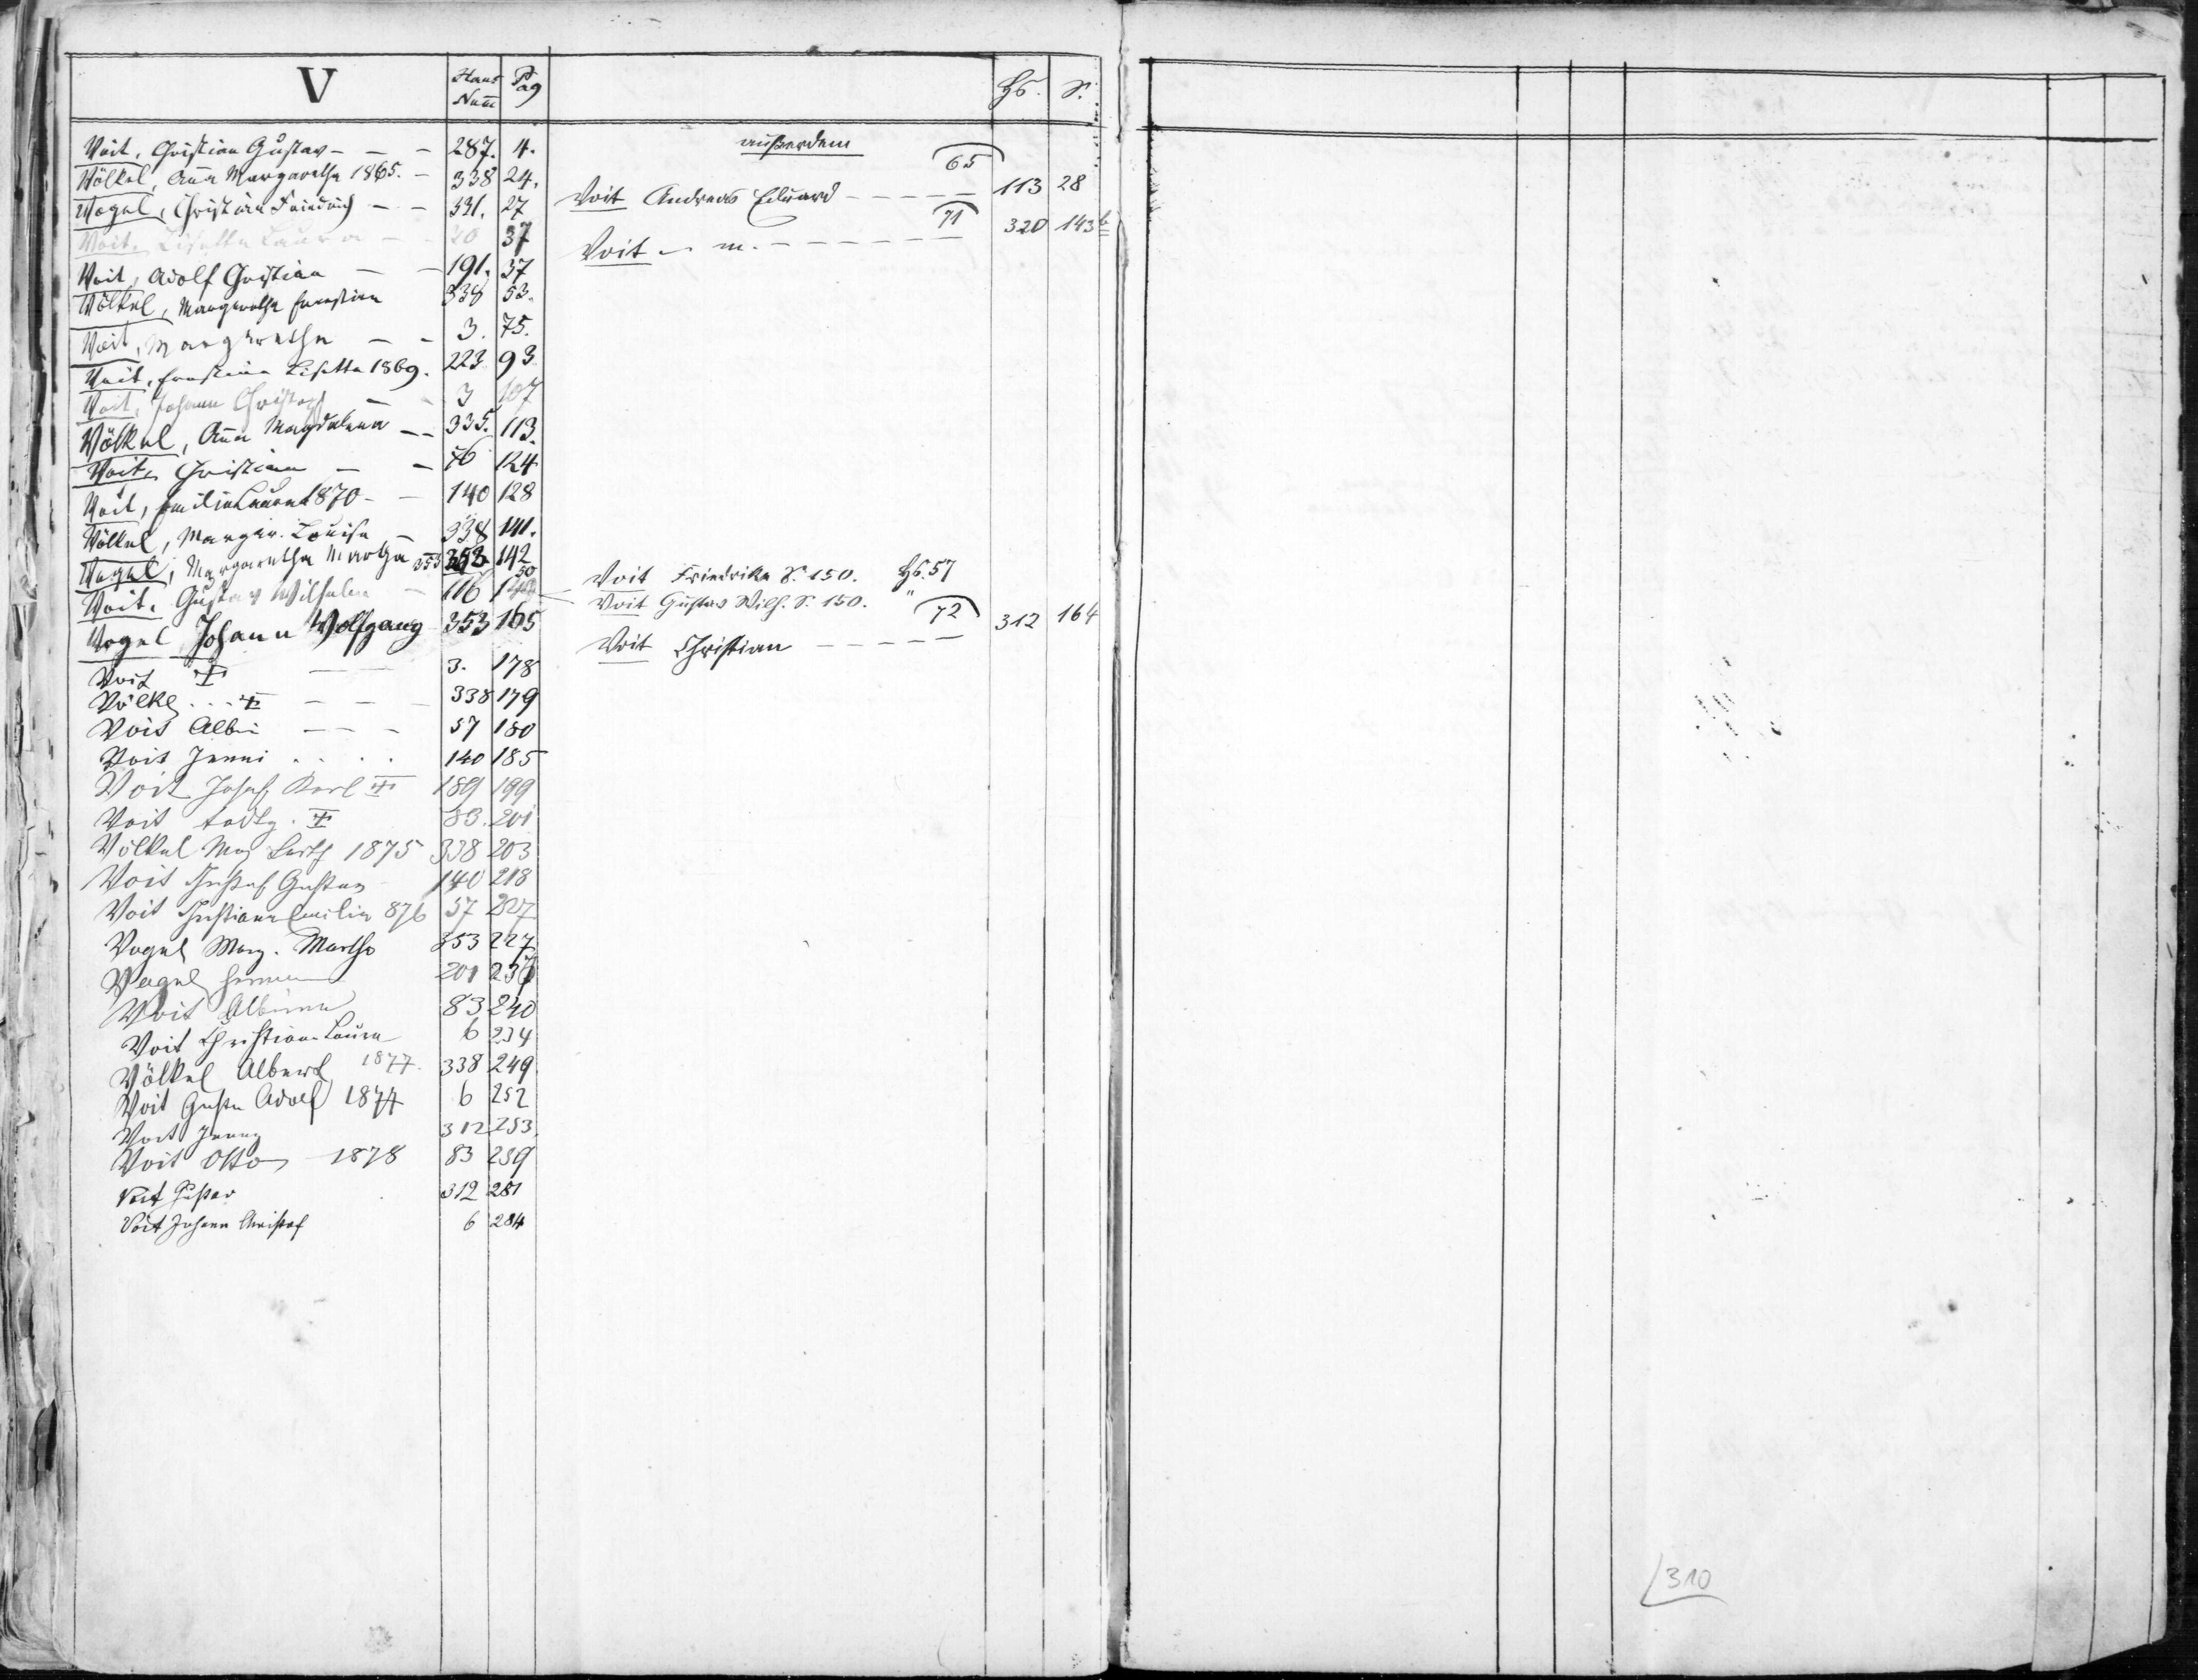 V Haus Num̅ Pag
Voit, Christian Gustav - - - 287. 4.
Völkel, Aña Margaretha 1865. - 338 24.
Vogel, Christian Friedrich - - 331. 27
Voit, Lisetta Laura - - 20 37
Voit, Adolf Christian - - 191. 37
Völkel, Margaretha Ernestine 338 53.
Voit, Margaretha - - 3. 75.
Voit, Ernstine Lisetta 1869. 223 93
Voit, Johann Christoph - - 3 107
Völkel, Aña Magdalena - - 335. 113.
Voit, Christiana - - 76 124
Voit, Emilie Laura 1870 - - 140 128
Völkel, Margar. Louise - 338 141.
Vogel, Margaretha Martha 353 142
Voit, Gustav Wilhelm - 116 50
Vogel Johann Wolfgang 353 165
Voit - - 3. 178
Völkel - - - 338 179
Voit Albin - - - 57 180
Voit Jenni . . . . 140 185
Voit Josef Karl 189 199
Voit todtg. 83. 201
Völkel Mag Barth 1875 338 203
Voit Gustav 140 218
Voit Christiane Emilie 876 57 227
Vogel Marg. Martha 353 227
Vogel Herman 201 237
Voit Albine 83 240
Voit Christiane Laura 6 234
Völkel Albert 1877. 338 249
Voit Adolf 1877 6 252
Voit Jenny 312 253.
Voit Otto 1878 83 259
Voit Gustav 312 281
Voit Johann Christof 6 284
Hs. S.
außerdem
65
Voit Andreas Eduard - - - - - 113 28
71
Voit - m. - - - - - - - 320 143b
Voit Friedrike S. 150. Hs. 57
Voit Gustav Wilh. S. 150. "
72
Voit Christian - - - - 312 164
310